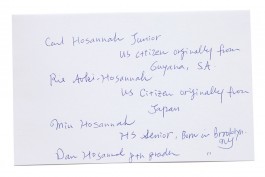 Carl Hosannah Junior
US citizen orginally from
Guyana, SA
Rie Aoki-Hosannah
US Citizen originally from
Japan
Min Hosannah
HS senior, Born in Brooklyn
NY
Dan Hosannah 7th grader "